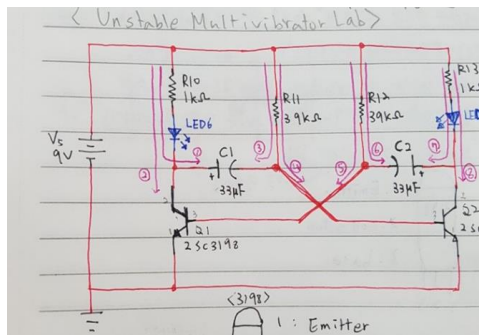 < Unstable Multivibrator Lab >
R10
1kΩ
LED6
R11
39kΩ
R12
39kΩ
R13
1kΩ
LED
Vs
9V
C1
+
33μF
C2
+
33μF
①
②
③
④
⑤
⑥
⑦
Q1
2SC3198
Q2
<3198>
1: Emitter